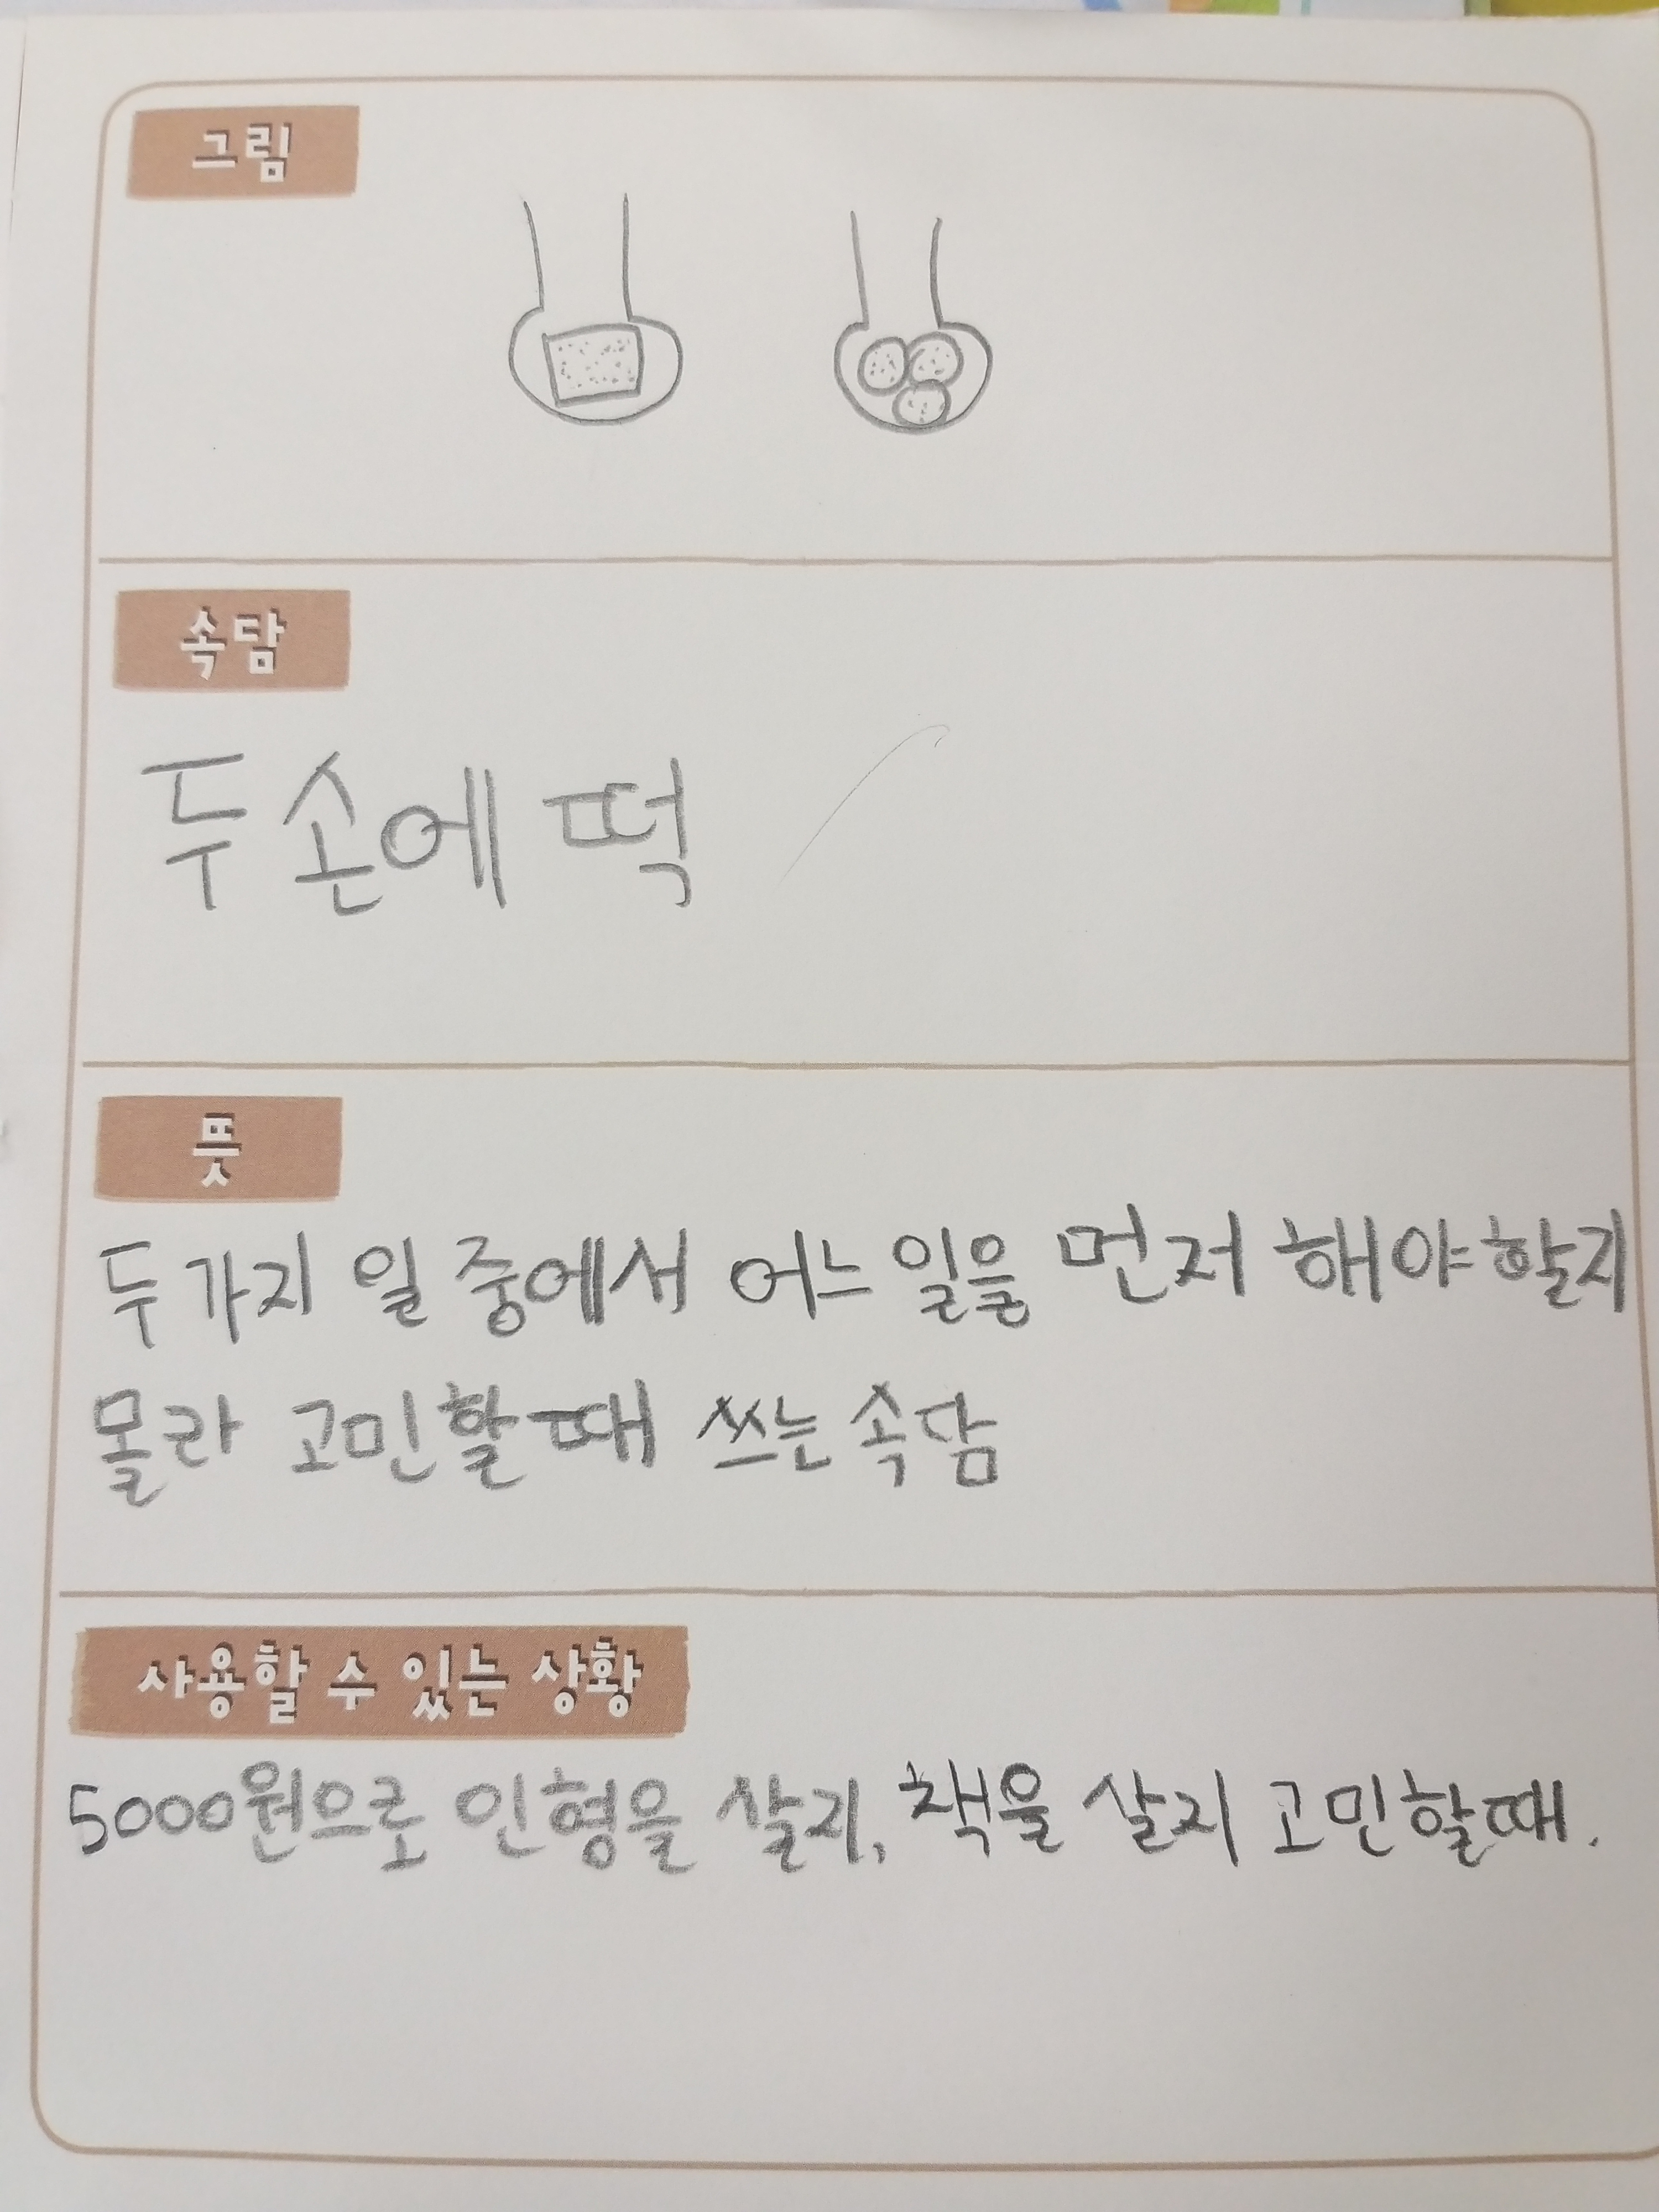 그림
속담
두 손에 떡
뜻
두 가지 일 중에서 어느 일을 먼저 해야 할지
몰라 고민할 때 쓰는 속담
사용할 수 있는 상황
5000원으로 인형을 살지, 책을 살지 고민할때.